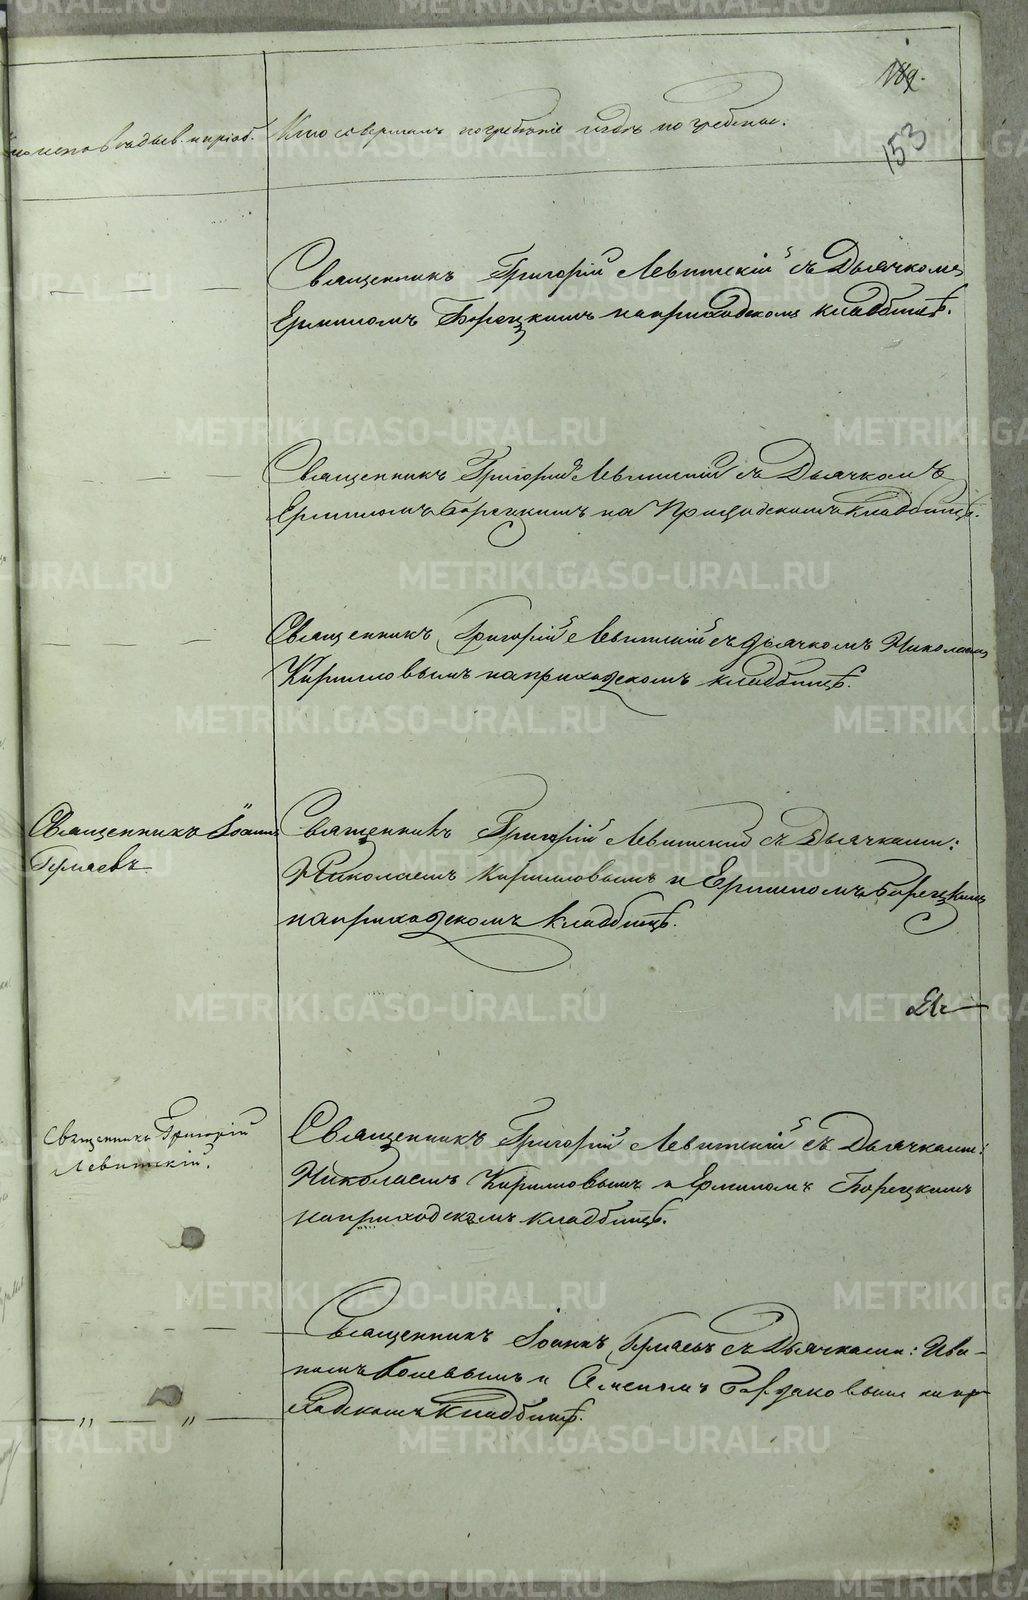 189.
153
исповѣдыв. и пріоб.
Кто совершалъ погребеніе и гдѣ погребены.
Священникъ Григорій Левитскій съ Дьячкомъ
Ермиломъ Борецкимъ на приходскомъ кладбищѣ.
Священникъ Григорій Левитскій съ Дьячкомъ
Ермиломъ Борецкимъ на Приходскомъ Кладбищѣ.
Священникъ Григорій Левитскій съ дьячкомъ Николаемъ
Кирилловымъ на приходскомъ кладбищѣ.
Священникъ Іоаннъ
Священникъ Григорій Левитский съ Дьячками:
Николаемъ Кирилловымъ и Ермиломъ Борецкимъ
на приходскомъ Кладбищѣ.
Священникъ Григорій
Левитскій.
Священникъ Григорій Левитскій съ Дьячками:
Николаемъ Кирилловымъ и Ермиломъ Борецкимъ
на приходскомъ кладбищѣ.
Священникъ Іоаннъ съ Дьячками: Ива-
номъ и на при-
ходскомъ Кладбищѣ.
METRIKI.GASO-URAL.RU